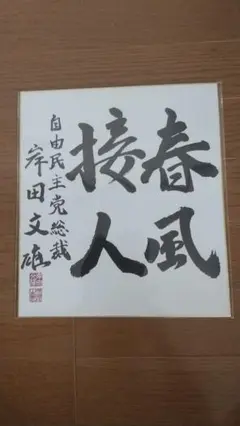 春風
接人
自由民主党総裁
岸田文雄